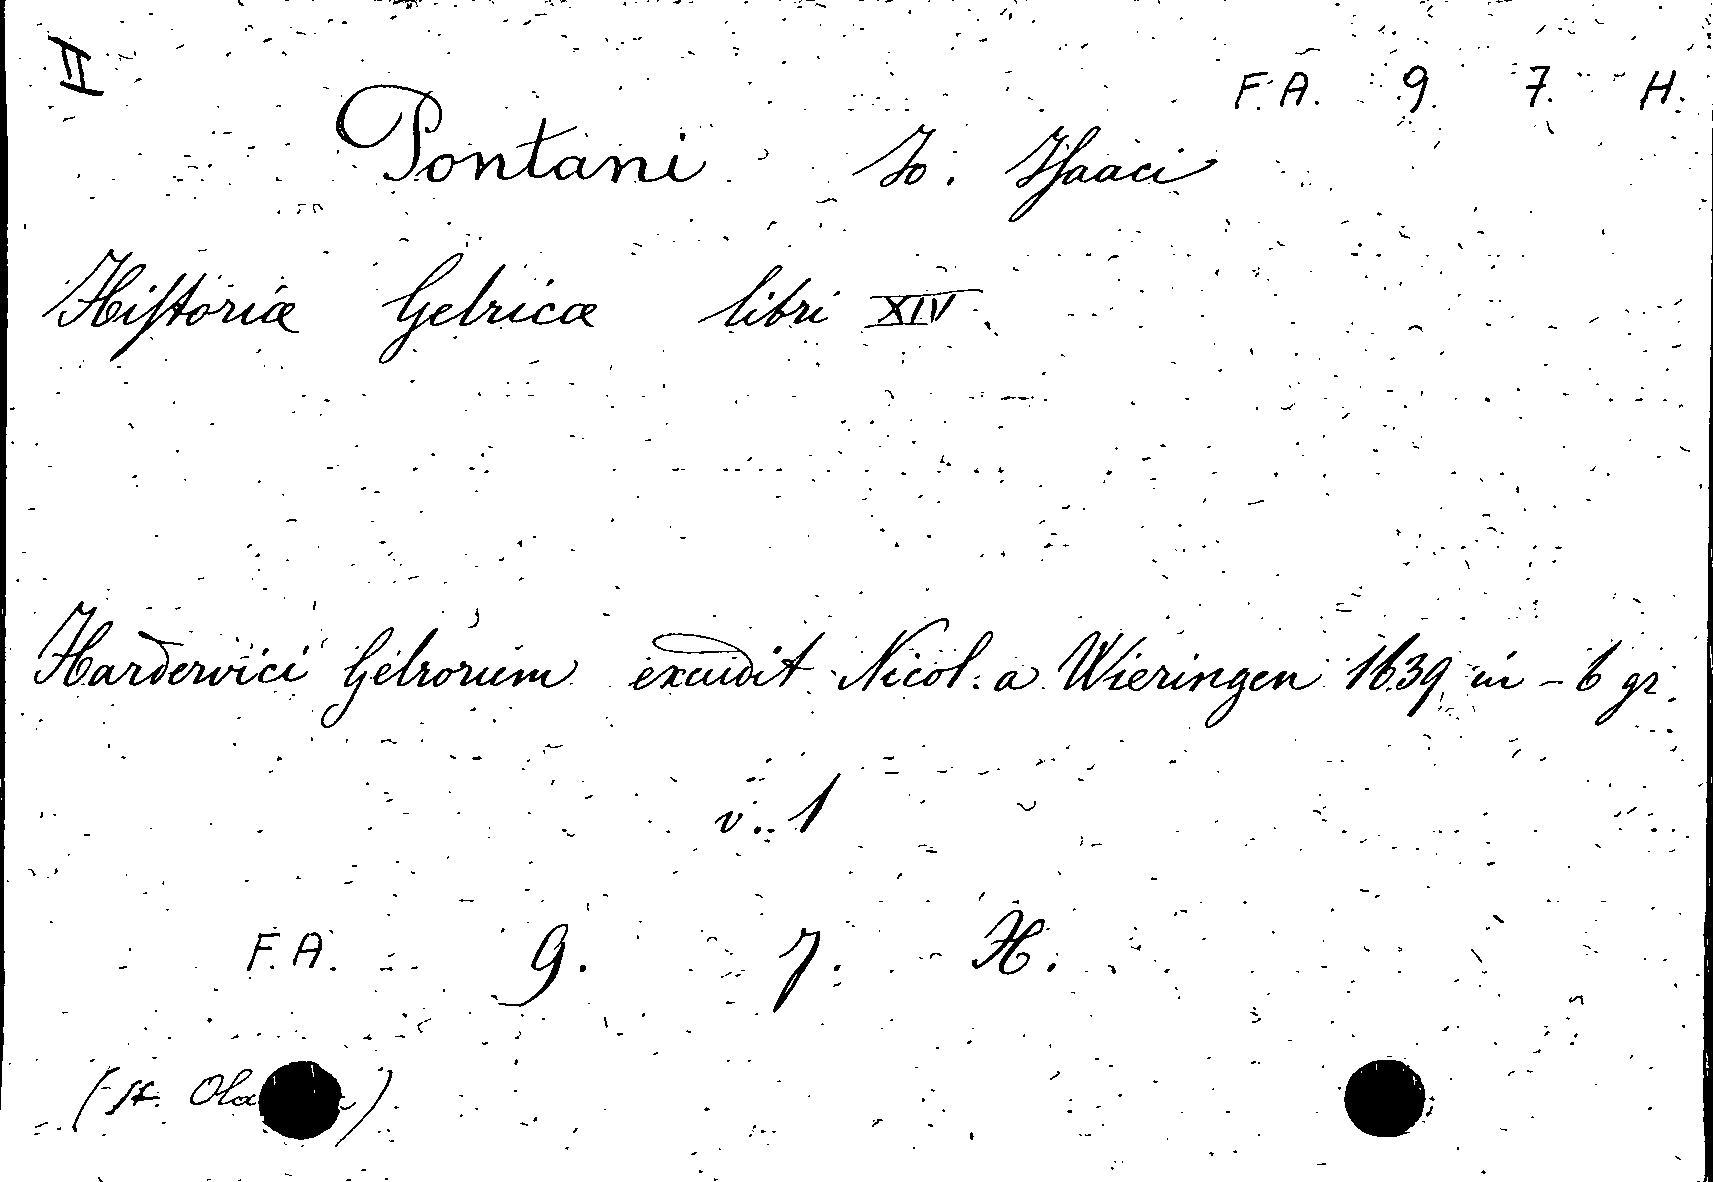 II
F. A. 9. 7. H.
Pontani Jo. Isaaci
Historiæ Gelricæ libri XIV.
Hardervici Gelrorum excudit Nicol. a Wieringen 1639 in - 6 gr.
v. 1
F. A. 9. 7. H.
(H.